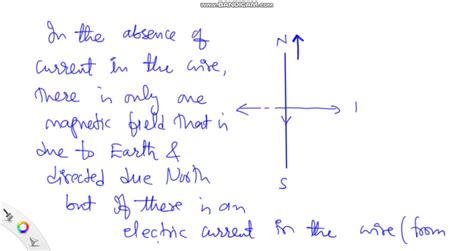 WWW.BANDICAM.COM
In the absence of
current in the wire,
there is only one
magnetic field that is
due to Earth &
directed due North
but if there is an
electric current in the wire (from
N
S